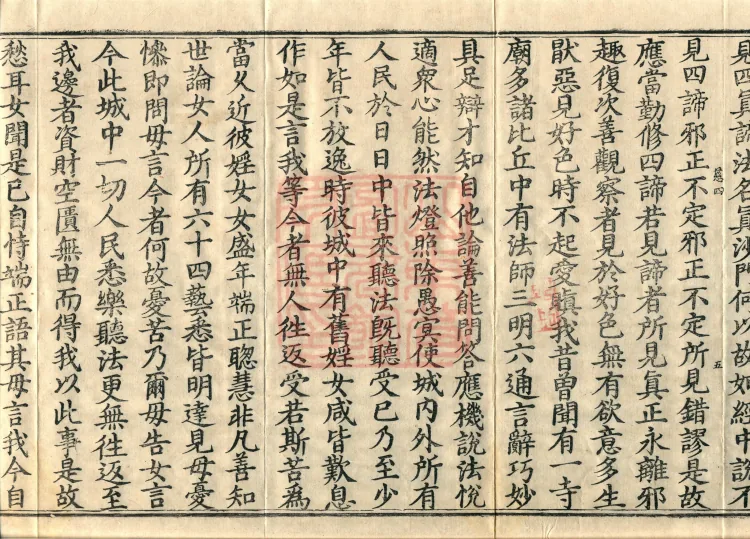 見四眞諦法名眞沙門何以故如經中說不
四
五
見四諦邪正不定邪正不定所見錯謬是故
應當勤修四諦若見諦者所見眞正永離邪
趣復次善觀察者見於好色無有欲意多生
猒惡見好色時不起愛瞋我昔曽聞有一寺
廟多諸比丘中有法師三明六通言辭巧妙
具足辯才知自他論善能問荅應機說法悅
適衆心能然法燈照除愚冥使城内外所有
人民於日日中皆來聽法旣聽受已乃至少
年皆不放逸時彼城中有舊婬女咸皆歎息
作如是言我等今者無人徃返受若斯苦爲
當久近彼婬女女盛年端正聰慧非凡善知
世論女人所有六十四藝悉皆明達見母憂
慘即問母言今者何故憂苦乃爾母告女言
今此城中一切人民悉樂聽法更無徃返至
我邊者資財空匱無由而得我以此事是故
愁耳女聞是已自恃端正語其母言我今自